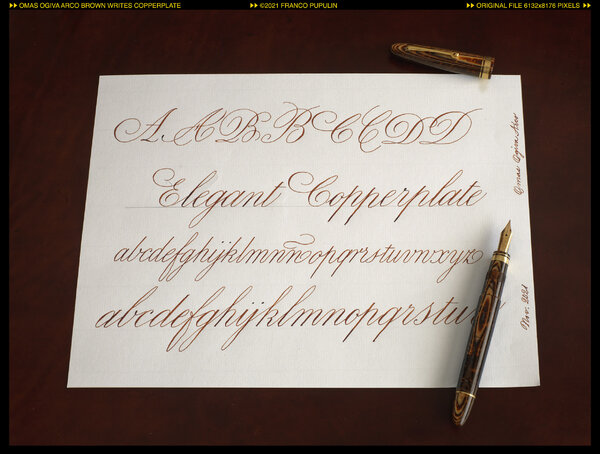 OMAS OGIVA ARCO BROWN WRITES COPPERPLATE
©2021 FRANCO PUPULIN
ORIGINAL FILE 6132x8176 PIXELS
A A B B C C D D
Elegant Copperplate
abcdefghijklmnñopqrstuvwxyz
abcdefghijklmnopqrstu
Omas Ogiva Arco
Nov. 2021